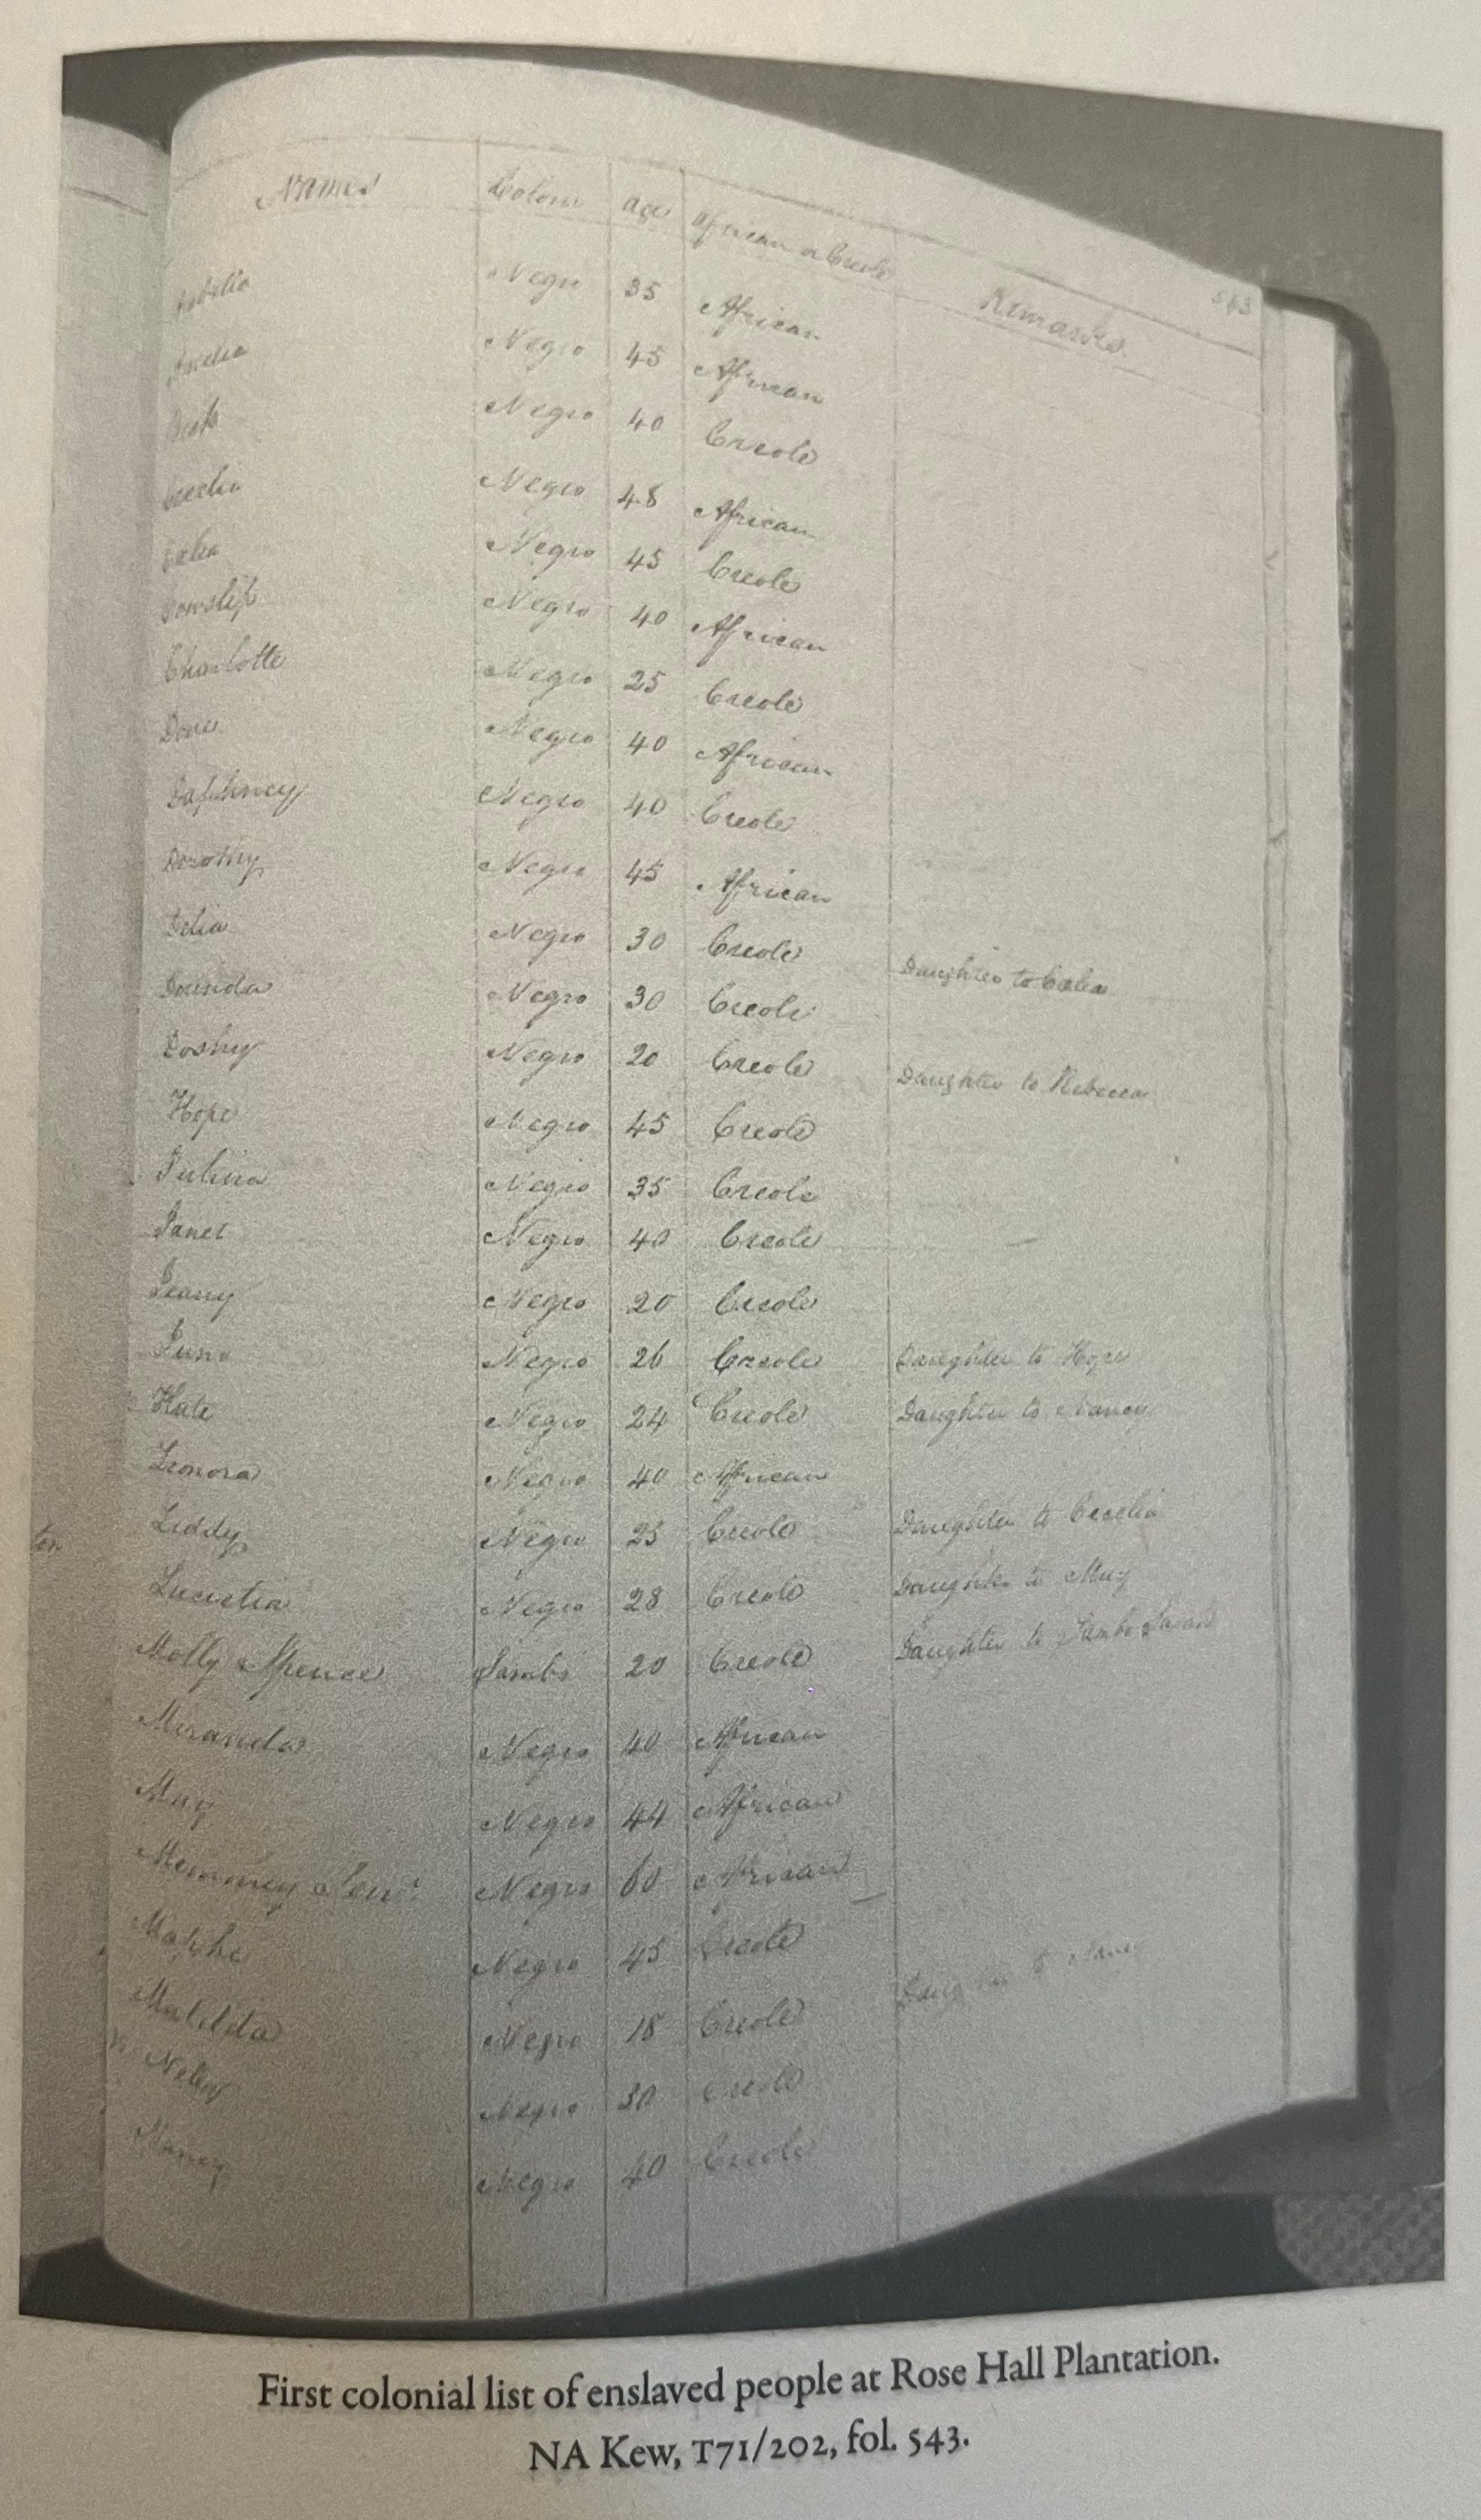 Names Colour Age African or Creole Remarks
543
Arabella Negro 35 African
Amelia Negro 45 African
Negro 40 Creole
Cecelia Negro 48 African
Celia Negro 45 Creole
Cowslip Negro 40 African
Charlotte Negro 25 Creole
Dove Negro 40 African
Daphney Negro 40 Creole
Dorothy Negro 45 African
Delia Negro 30 Creole Daughter to Celia
Dorinda Negro 30 Creole
Doshy Negro 20 Creole Daughter to Rebecca
Hope Negro 45 Creole
Julina Negro 35 Creole
Janet Negro 40 Creole
Jeany Negro 20 Creole
Juno Negro 26 Creole Daughter to Hope
Kate Negro 24 Creole Daughter to Nancy
Leonora Negro 40 African
Liddy Negro 25 Creole Daughter to Cecelia
Lucretia Negro 28 Creole Daughter to May
Molly Spence Sambo 20 Creole Daughter to Sambo Sarah
Miranda Negro 40 African
May Negro 44 African
Memmey Negro 60 African
Negro 45 Creole
Matilda Negro 18 Creole Daughter to
Negro 30 Creole
Nancy Negro 40 Creole
First colonial list of enslaved people at Rose Hall Plantation.
NA Kew, T71/202, fol. 543.